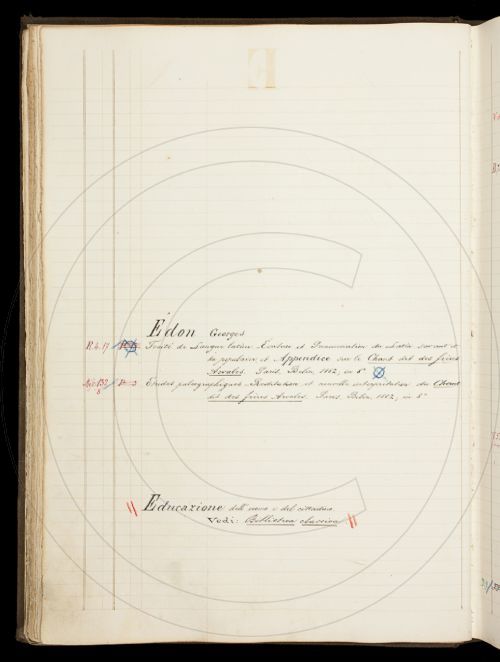 E
Edon Georges
R. 4. 17 Traité de Langue latine. Écriture et Prononciation du Latin savant et
du populaire et Appendice sur le Chant dit des frères
Arvales. Paris, Belin, 1882, in 8°
Études paléographiques. Restitution et nouvelle interprétation du Chant
dit des frères Arvales. Paris, Belin, 1882, in 8°
Educazione dell'uomo e del cittadino
Vedi: Biblioteca